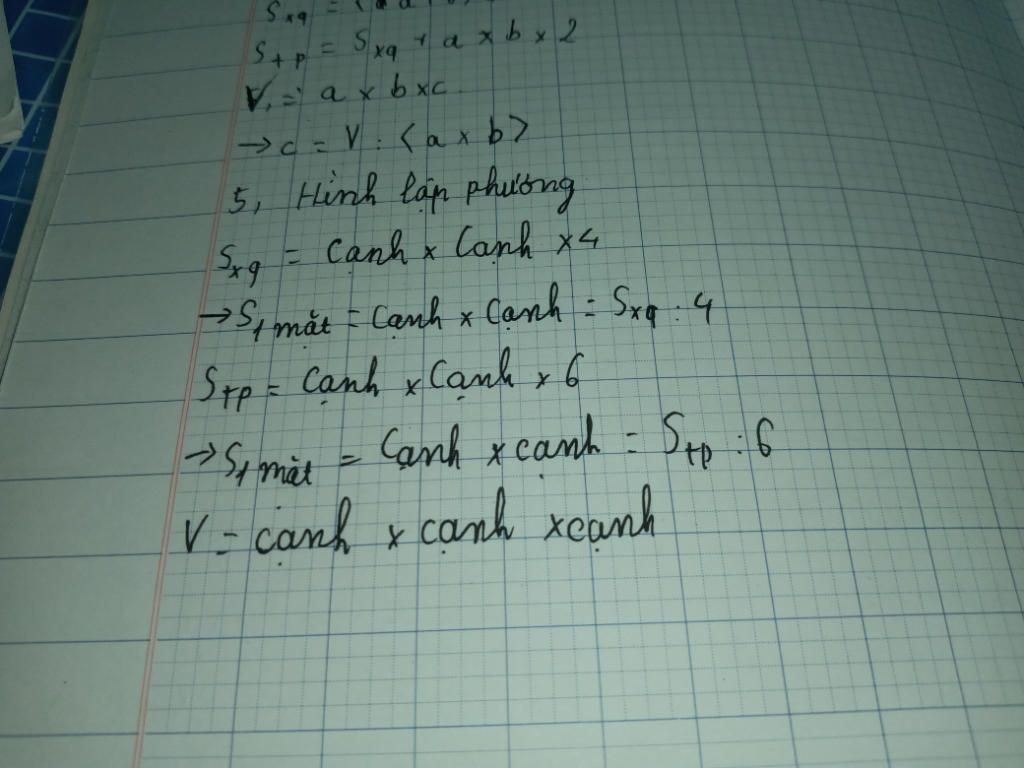 Sxq = (a
Stp = Sxq + a x b x 2
V = a x b x c
→ c = V : (a x b)
5, Hình lập phương
Sxq = Cạnh x Cạnh x 4
→ S1 mặt = Cạnh x Cạnh = Sxq : 4
Stp = Cạnh x Cạnh x 6
→ S1 mặt = Cạnh x cạnh = Stp : 6
V = cạnh x cạnh x cạnh